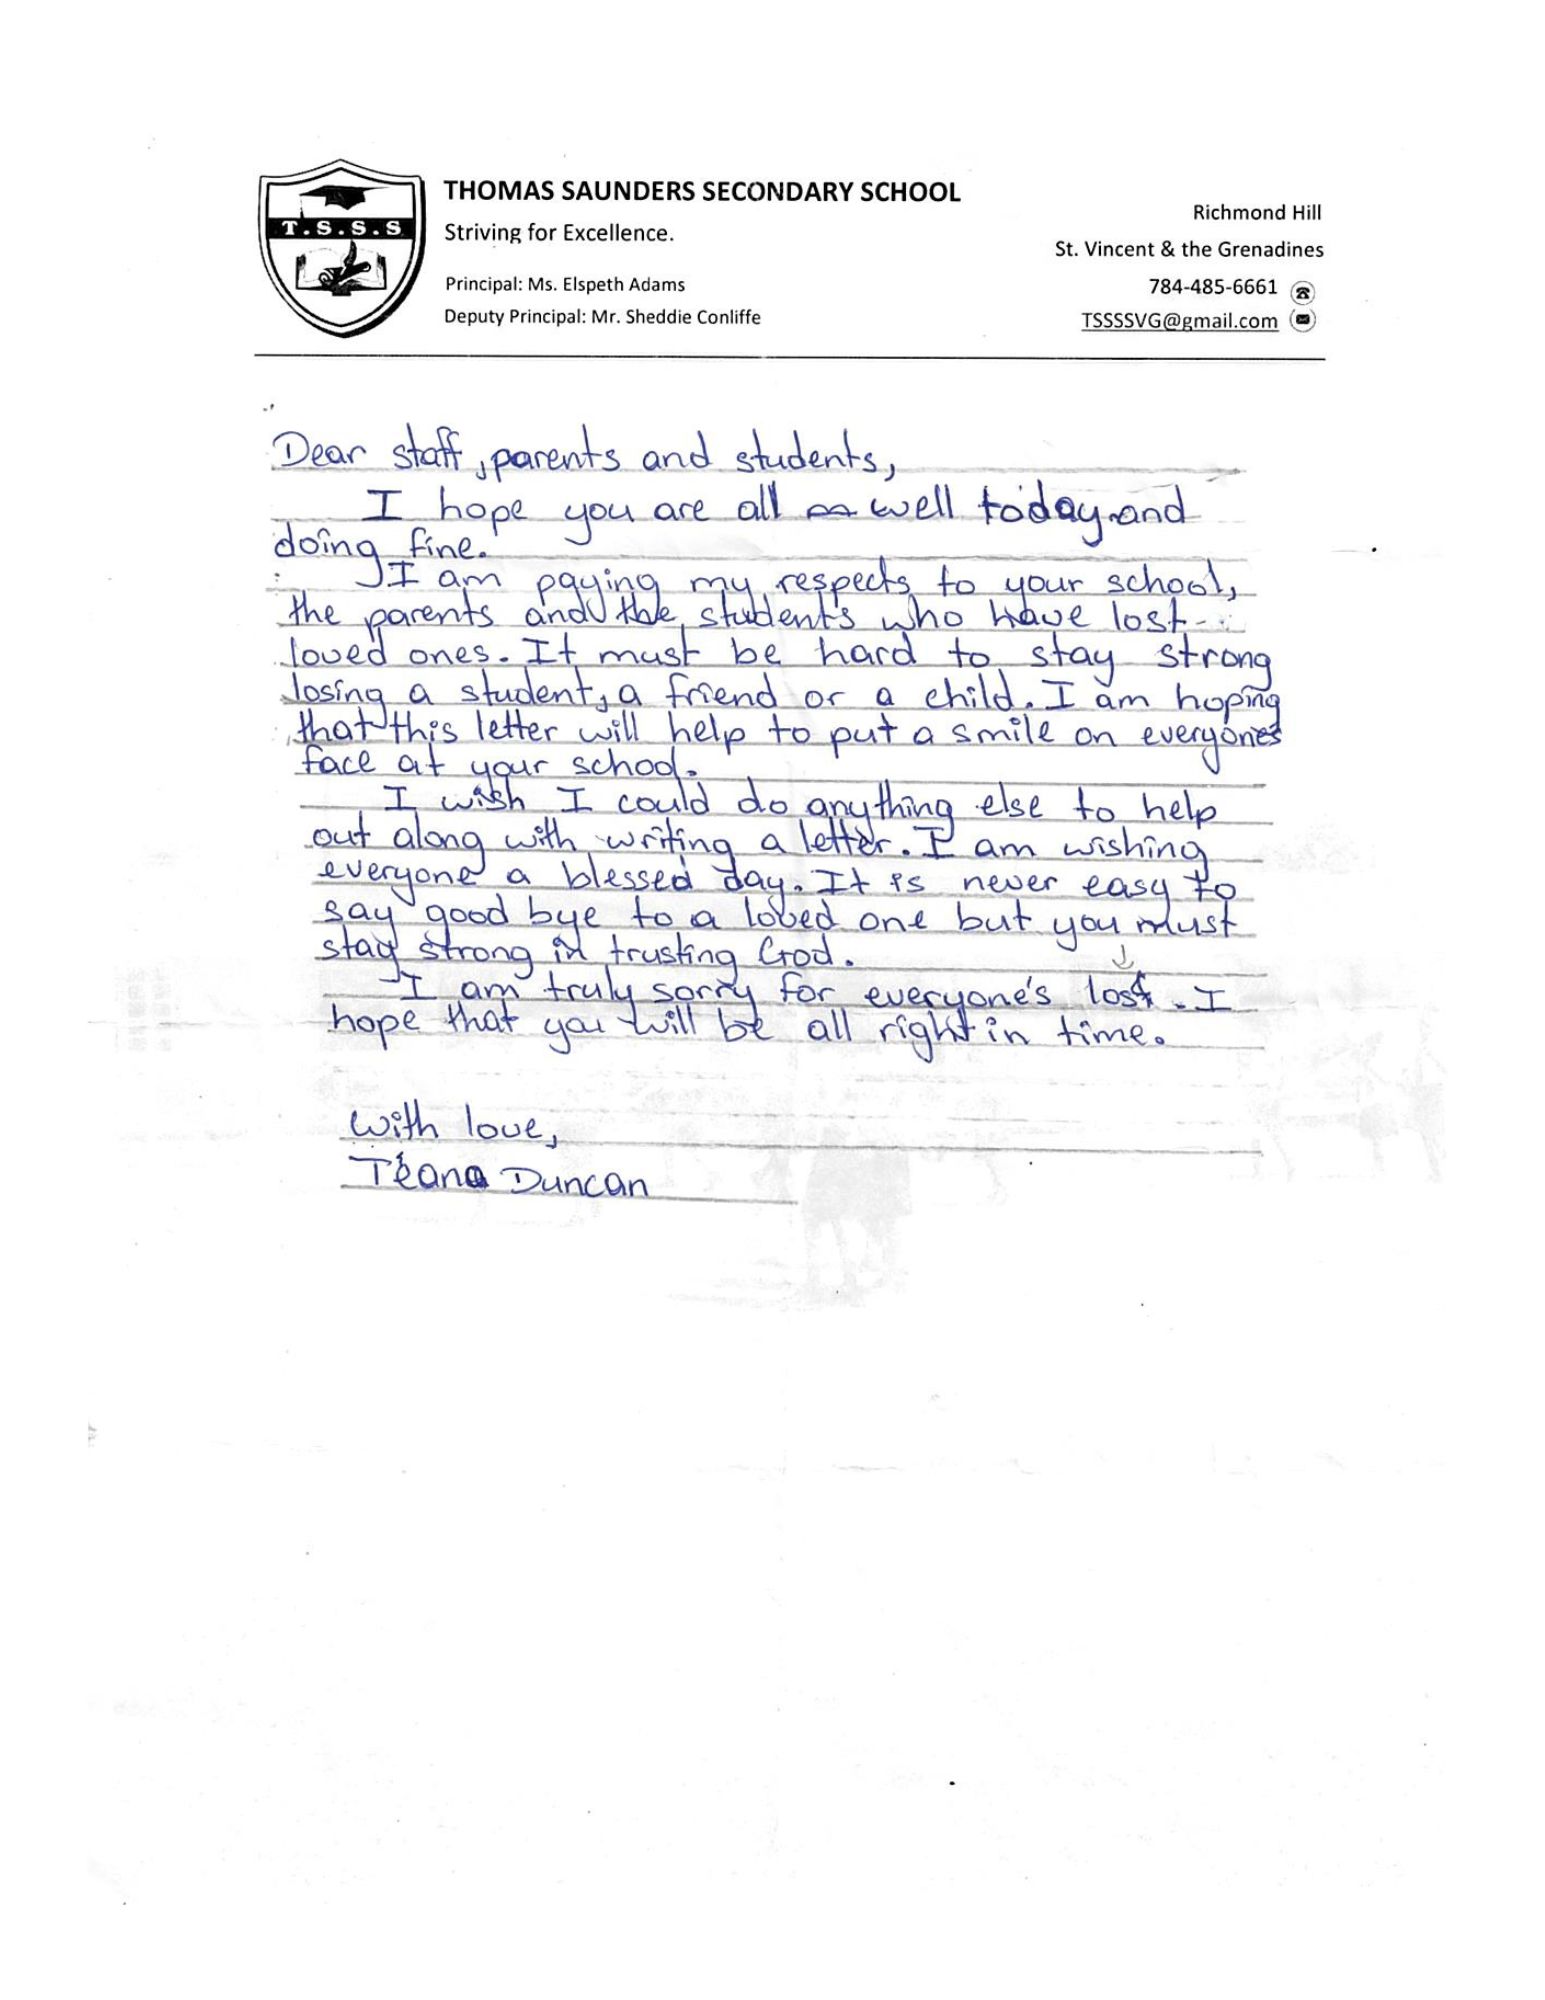 T.S.S.S
THOMAS SAUNDERS SECONDARY SCHOOL
Striving for Excellence.
Principal: Ms. Elspeth Adams
Deputy Principal: Mr. Sheddie Conliffe
Richmond Hill
St. Vincent & the Grenadines
784-485-6661
TSSSSVG@gmail.com
Dear staff, parents and students,
I hope you are all well today and
doing fine.
I am paying my respects to your school,
the parents and the students who have lost
loved ones. It must be hard to stay strong
losing a student, a friend or a child. I am hoping
that this letter will help to put a smile on everyones
face at your school.
I wish I could do anything else to help
out along with writing a letter. I am wishing
everyone a blessed day. It is never easy to
say good bye to a loved one but you must
stay strong in trusting God.
I am truly sorry for everyone's lost. I
hope that you will be all right in time.
With love,
Téana Duncan